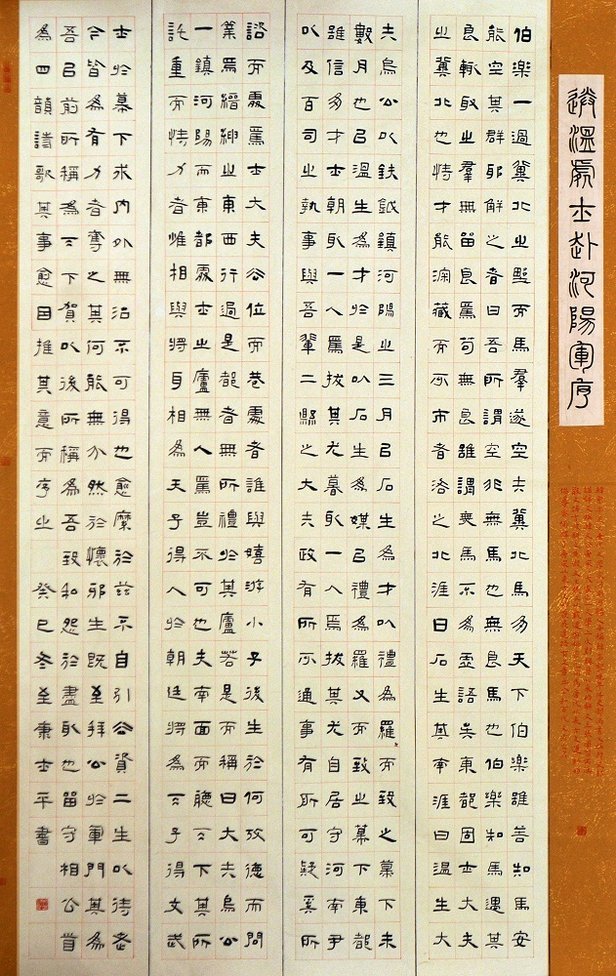 送溫處士赴河陽軍序
伯樂一過冀北之野而馬羣遂空夫冀北馬多天下伯樂雖善知馬安
能空其群耶解之者曰吾所謂空非無馬也無良馬也伯樂知馬遇其
良輒取之羣無留良焉苟無良雖謂無馬不為虛語矣東都固士大夫
之冀北也恃才能深藏而不市者洛之北涯曰石生其南涯曰溫生大
夫烏公以鈇鉞鎮河陽之三月以石生為才以禮為羅而致之幕下未
數月也以溫生為才於是以石生為媒以禮為羅又而致之幕下東都
雖信多才士朝取一人焉拔其尤暮取一人焉拔其尤自居守河南尹
以及百司之執事與吾輩二縣之大夫政有所不通事有所可疑奚所
諮而處焉士大夫去位而巷處者誰與嬉游小子後生於何攷德而問
業焉縉紳之東西行過是都者無所禮於其廬若是而稱曰大夫烏公
一鎮河陽而東都處士之廬無人焉豈不可也夫南面而聽天下其所
託重而恃力者惟相與將耳相為天子得人於朝廷將為天子得文武
士於幕下求內外無治不可得也愈縻於茲不自引去資二生以待老
今皆為有力者奪之其何能無介然於懷邪生既至拜公於軍門其為
吾以前所稱為天下賀以後所稱為吾致私怨於盡取也留守相公首
為四韻詩歌其事愈因推其意而序之 癸巳冬至 士平書